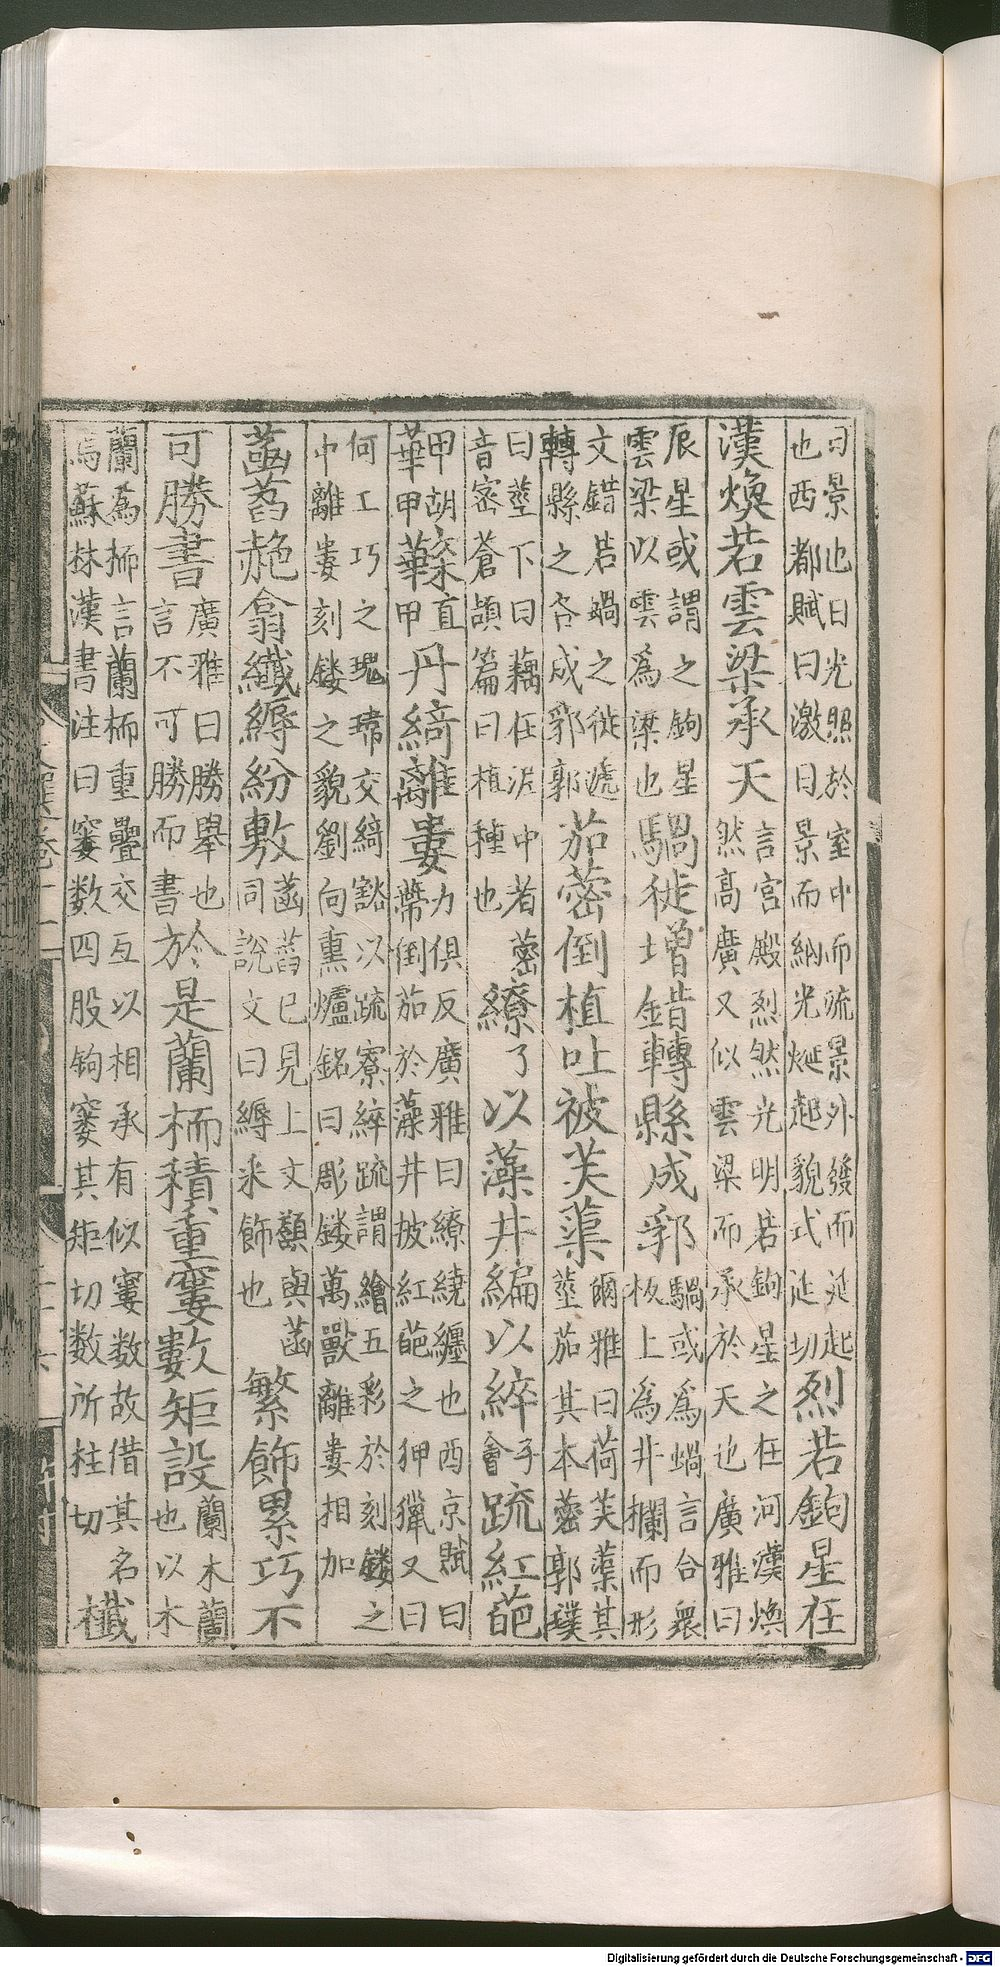 日景也日光照於室中而流景外發而延起
也西都賦曰激日景而納光烻起貌式延切烈若鉤星在
漢煥若雲梁承天言宮殿烈然光明若鉤星之在河漢煥
然高廣又似雲梁而承於天也廣雅曰
辰星或謂之鉤星
雲梁以雲爲梁也騧徙增錯轉縣成郛騧或爲蝸言合衆
板上爲井欄而形
文錯若蝸之徙遞
轉縣之各成郛郭茄蔤倒植吐被芙蕖爾雅曰荷芙蕖其
莖茄其本蔤郭璞
曰莖下曰藕在泥中者蔤
音密蒼頡篇曰植種也繚了以藻井編以綷子會疏紅葩
甲胡
華甲𦽏直甲丹綺離婁力俱反廣雅曰繚繞纏也西京賦曰
蔕倒茄於藻井披紅葩之狎獵又曰
何工巧之瑰瑋交綺豁以疏寮綷疏謂繪五彩於刻鏤之
中離婁刻鏤之貌劉向熏爐銘曰彫鏤萬獸離婁相加
菡萏赩翕纖縟紛敷菡萏已見上文䕾與菡
同說文曰縟釆飾也繁飾累巧不
可勝書廣雅曰勝舉也
言不可勝而書於是蘭栭積重窶數矩設蘭木蘭
也以木
蘭爲栭言蘭栭重疊交互以相承有似窶數故借其名
焉蘇林漢書注曰窶數四股鉤窶其矩切數所柱切櫼
Digitalisierung gefördert durch die Deutsche Forschungsgemeinschaft - DFG